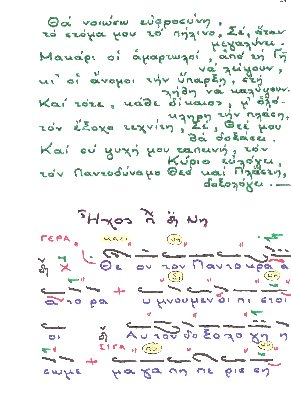 Θά νοιώσω εὐφροσύνη,
τό στόμα μου τό πήλινο, Σέ, ὅταν
μεγαλύνει.
Μακάρι οἱ ἁμαρτωλοί, ἀπό τή Γῆ
νά λείψουν,
κι' οἱ ἄνομοι τήν ὕπαρξη, στή
λήθη νά καλύψουν.
Καί τότε, κάθε δίκαιος, μ' ὁλό-
κληρη τήν πλάση,
τόν ἔξοχο τεχνίτη, Σέ, Θεέ μου
νά δοξάσει.
Καί σύ ψυχή μου ταπεινή, τόν
Κύριο εὐλόγει,
τόν Παντοδύναμο Θεό καί Πλάστη,
δοξολόγει.
Ἦχος
ΓΕΡΑ.
Θε ον τον Παντοκρα α
α το ρα υ μνουμεν οι πι στοι
οι Αυ τον δοξολο γη η
σωμε μα γα πη πε ρισ ση